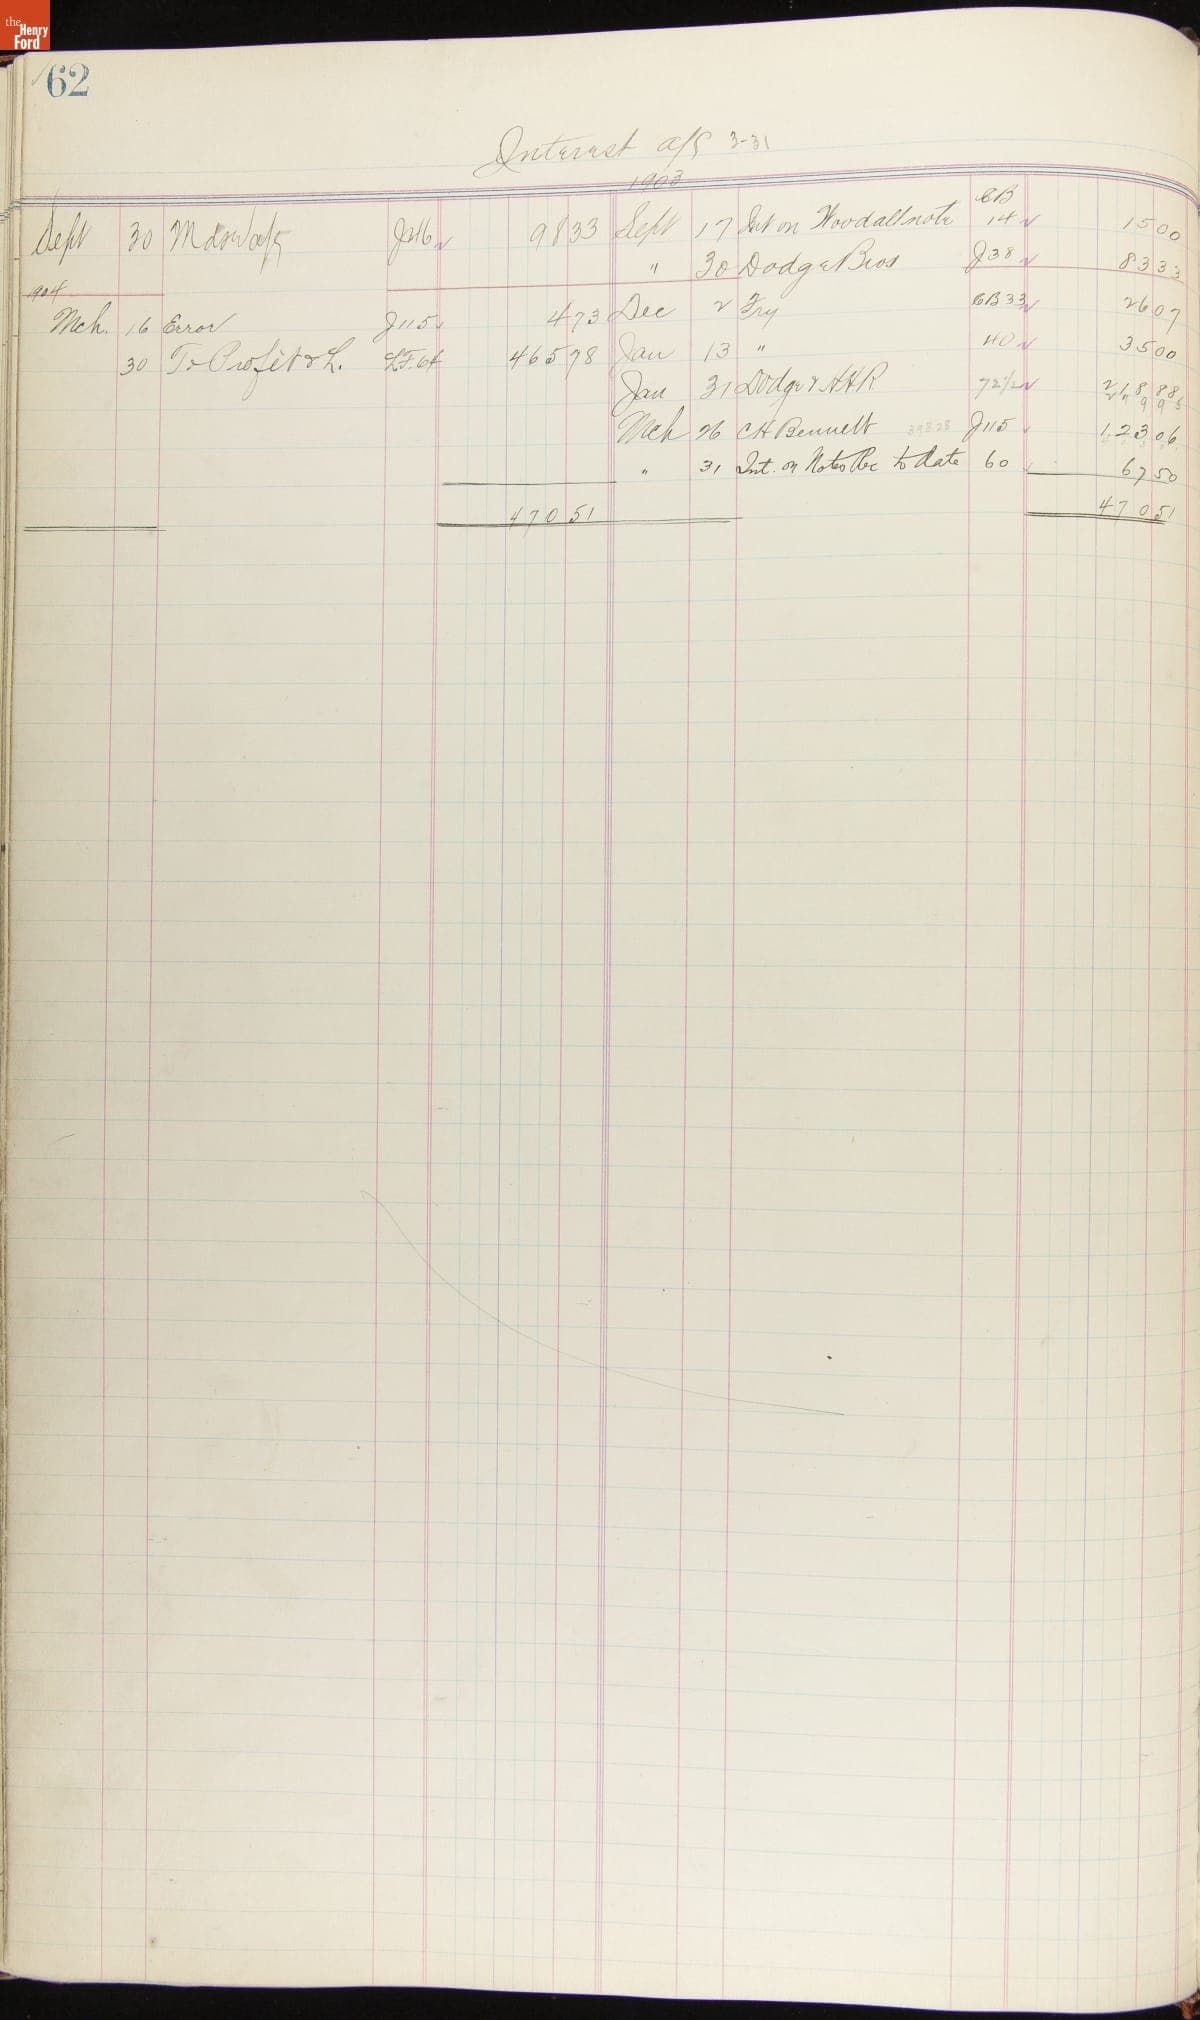 the Henry Ford
62
Interest a/c 3-31
1903
Sept 30 Mdse a/c J 46 98 33
1904
Mch. 16 Error J 115 4 73
30 To Profit & L. L.F. 64 465 78
470 51
Sept 17 Int on Woodall note CB 14 15 00
" 30 Dodge Bros J 38 83 33
Dec 2 Fry CB 33 26 07
Jan 13 " 40 35 00
Jan 31 Dodge & HHR 72 1/2 218 88
Mch 26 CH Bennett 398 28 J 115 123 06
" 31 Int. on Notes Rec to date 60 67 50
470 51